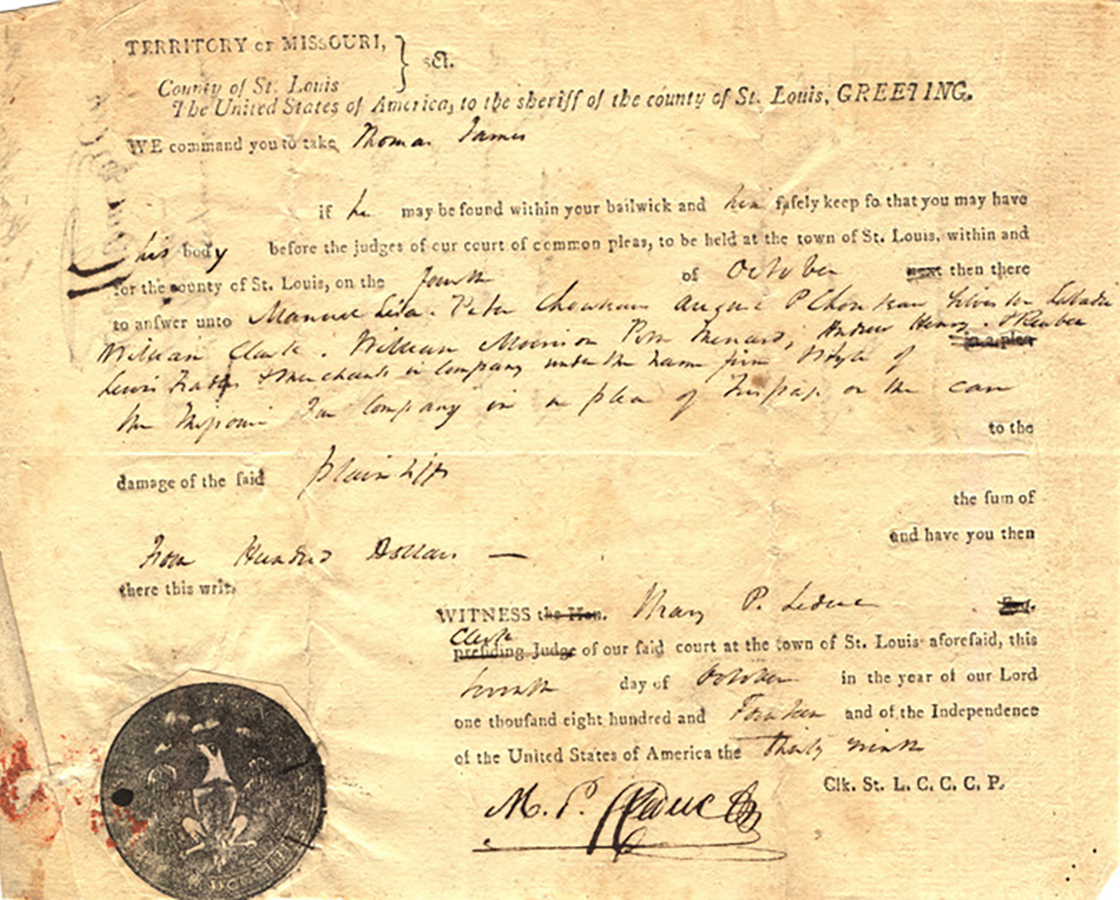 TERRITORY OF MISSOURI, } sct.
County of St. Louis
The United States of America, to the sheriff of the county of St. Louis, GREETING.
WE command you to take Thomas James
if he may be found within your bailwick and him safely keep so that you may have
his body before the judges of our court of common pleas, to be held at the town of St. Louis, within and
for the county of St. Louis, on the fourth of October next then there
to answer unto Manuel Lisa. Peter Chouteau August P Chouteau Silvester Labadie
William Clark. William Morrison Menard, Andrew Henry. & Reuben in a plea
Lewis Traders & Merchants in Company under the name firm & Style of
the Missouri Fur Company in a plea of Trespass on the case
to the
damage of the said plaintiffs
the sum of
Hundred Dollars —
and have you then
there this writ.
WITNESS the Hon. Mary P. Leduc Esq.
Clerk
presiding Judge of our said court at the town of St. Louis aforesaid, this
day of October in the year of our Lord
one thousand eight hundred and Fourteen and of the Independence
of the United States of America the thirty ninth
Clk. St. L. C. C. C. P.
M. P. Leduc